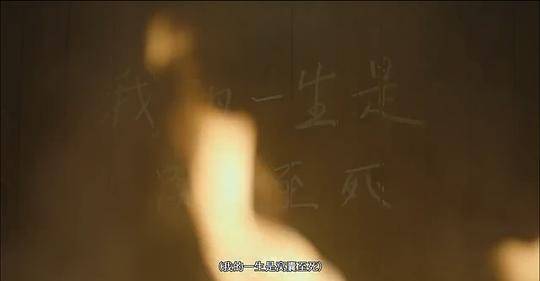 我的一生是
至死
(我的一生是窩囊至死)